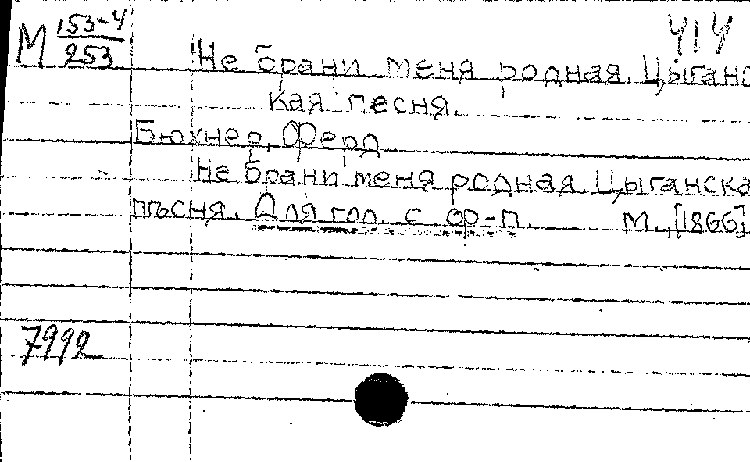 М 153-4/253
414
Не брани меня родная. Цыганс
кая песня.
Бюхнер, Ферд.
Не брани меня родная. Цыганска
пѣсня. Для гол. с ф-п. М., [1866]
7992